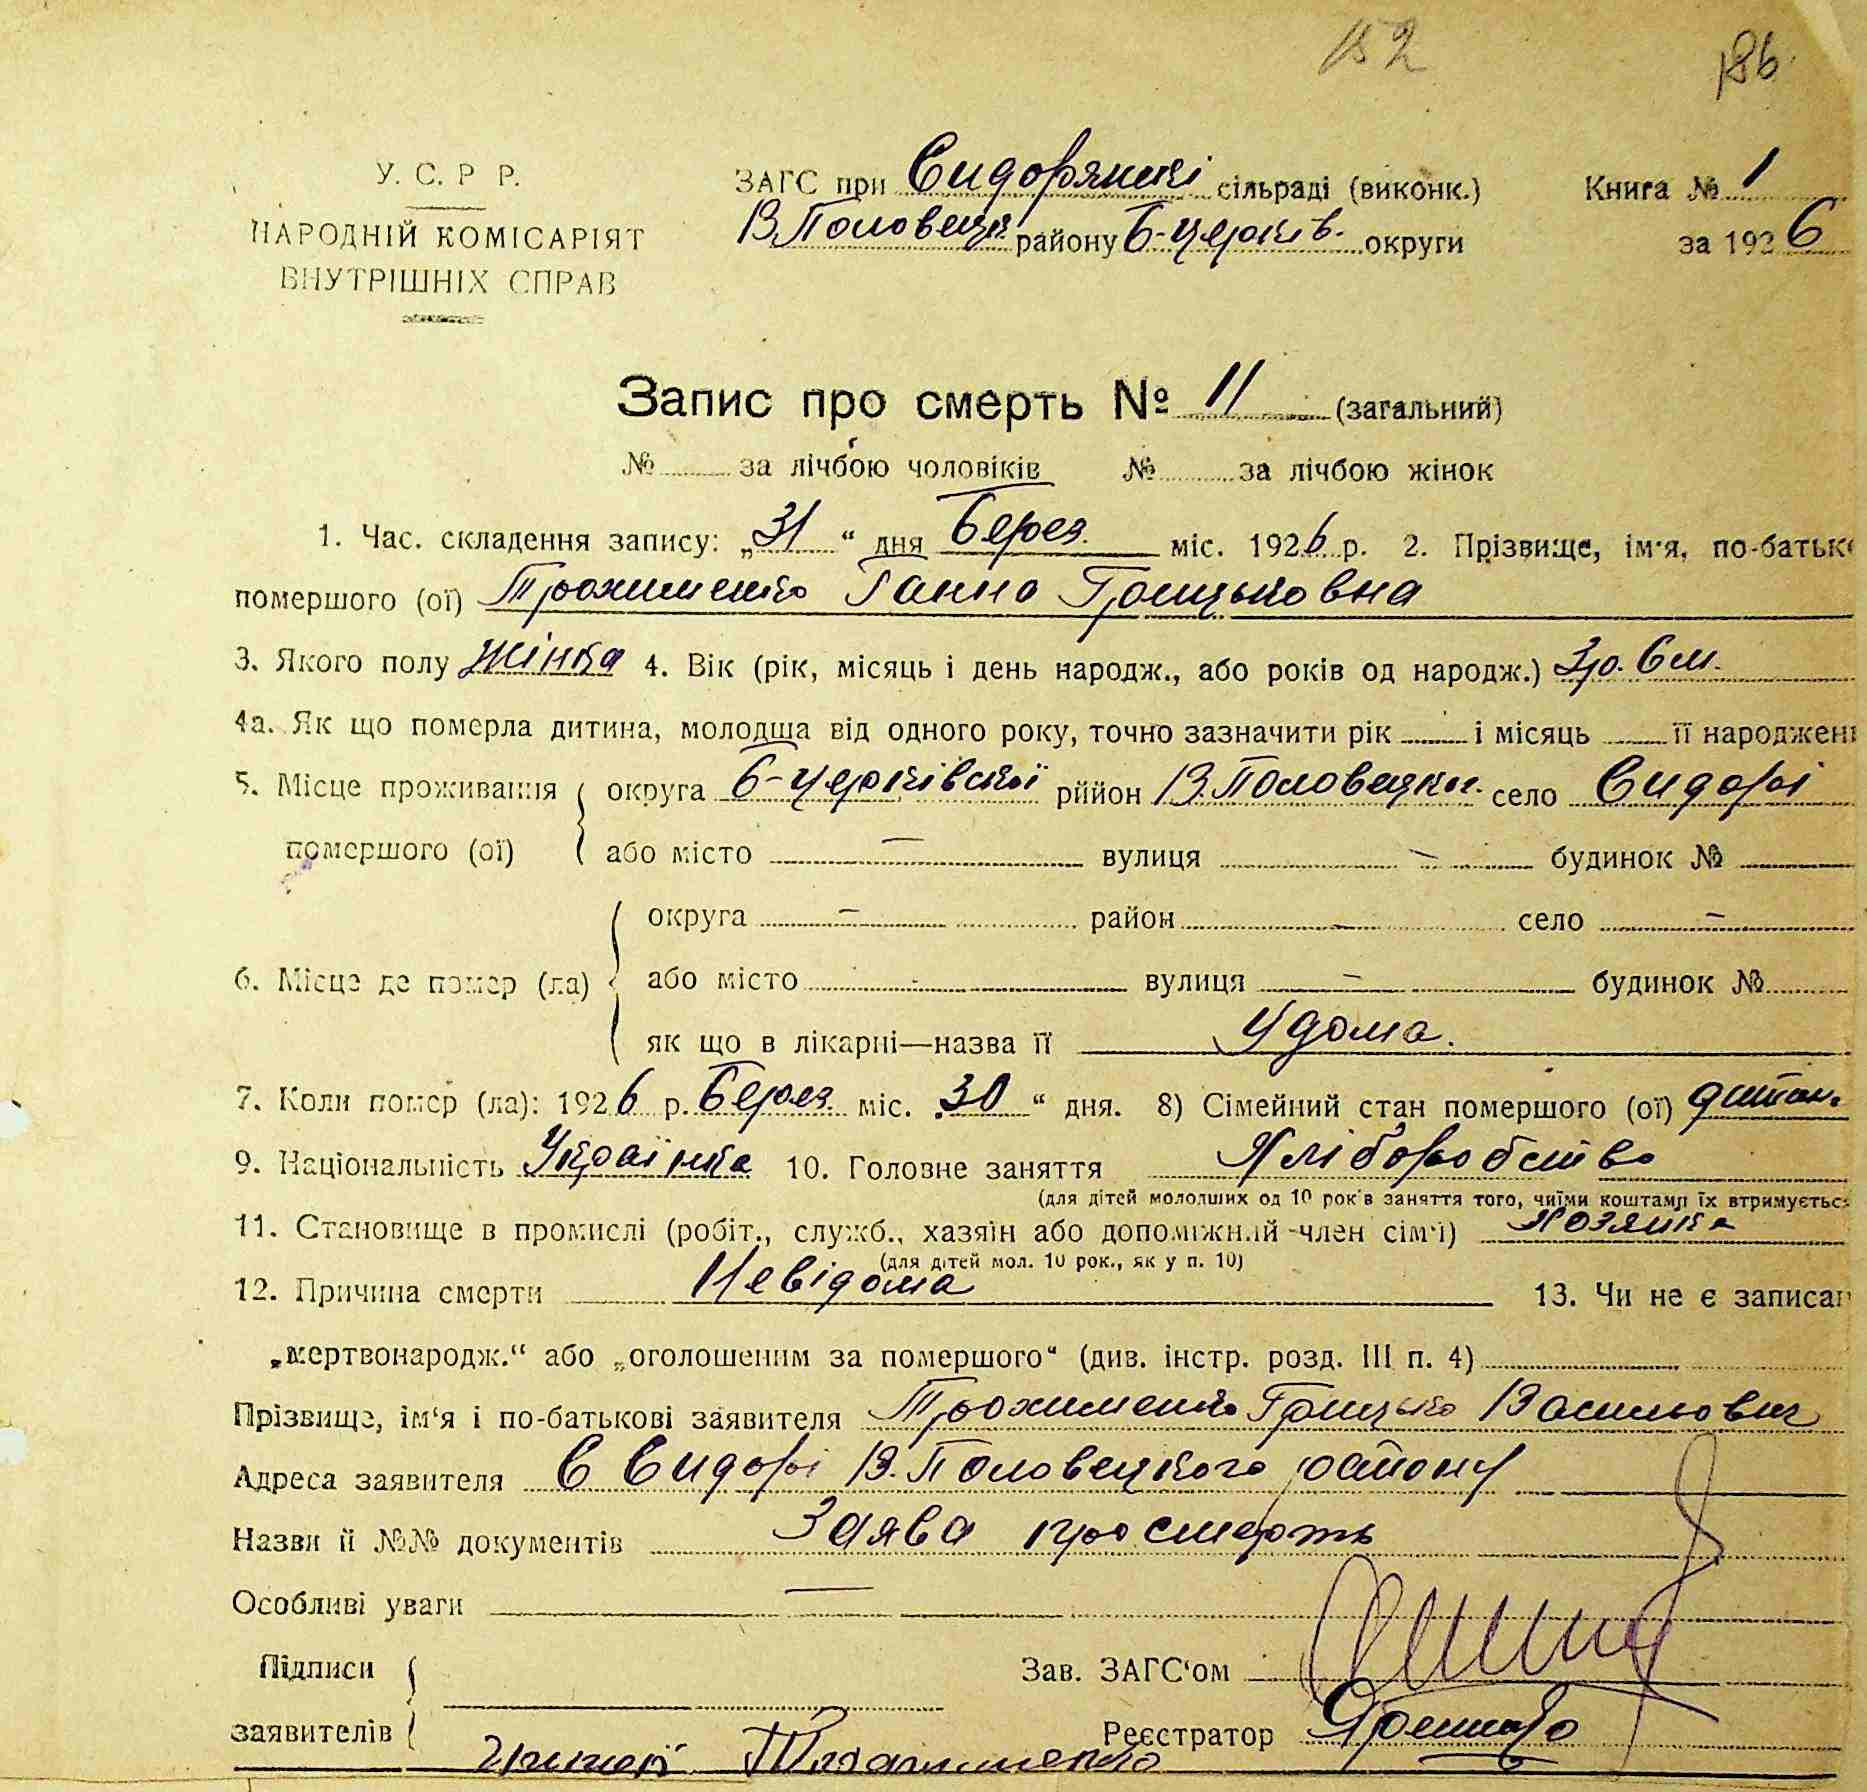 152 186
У. С. Р Р.
НАРОДНІЙ КОМІСАРІЯТ
ВНУТРІШНІХ СПРАВ
ЗАГС при Сидорянські сільраді (виконк.) Книга № 1
В. Половецьк району Б-церків. округи за 1926
Запис про смерть № 11 (загальний)
№ за лічбою чоловіків № за лічбою жінок
1. Час. складення запису: „31“ дня Берез. міс. 1926 р. 2. Прізвище, ім'я, по-батьк
помершого (ої) Трохименко Ганна Грицьковна
3. Якого полу Жінка 4. Вік (рік, місяць і день народж., або років од народж.) 3р. 6м.
4а. Як що померла дитина, молодша від одного року, точно зазначити рік і місяць її народжен
5. Місце проживання округа Б-церківської рйион В Половецьк. село Сидорі
помершого (ої) або місто — вулиця — будинок №
округа — район — село —
6. Місце де помер (ла) або місто - вулиця — будинок №
як що в лікарні—назва її У дома.
7. Коли помер (ла): 1926 р. Берез. міс. „30“ дня. 8) Сімейний стан помершого (ої) дитин.
9. Національність Українка 10. Головне заняття Хліборобство
(для дітей молодших од 10 років заняття того, чиїми коштами їх втримуєтьс
11. Становище в промислі (робіт., служб., хазяїн або допоміжний член сім'ї) Хозяйка
(для дітей мол. 10 рок., як у п. 10)
12. Причина смерти Невідома 13. Чи не є записан
„мертвонародж.“ або „оголошеним за помершого“ (див. інстр. розд. III п. 4)
Прізвище, ім'я і по-батькові заявителя Трохименко Грицько Васильович
Адреса заявителя С Сидорі В. Половецького району
Назви й №№ документів Заява про смерть
Особливі уваги —
Підписи Зав. ЗАГС'ом
заявителів Реєстратор